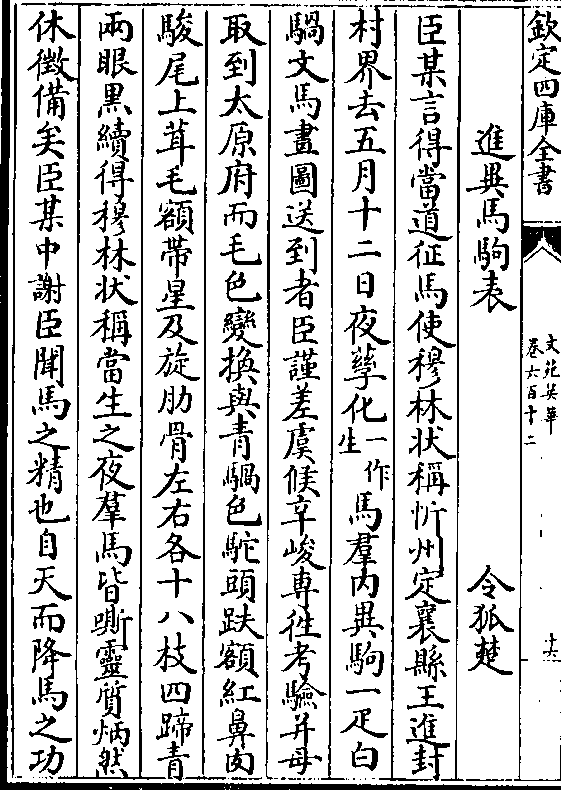 欽定四庫全書
文苑英華
卷六百十二
十六
進異馬駒表 令狐楚
臣某言得當道征馬使穆林状稱忻州定襄縣王進封
村界去五月十二日夜孳化一作生馬羣内異駒一疋白
騧文馬畫圖送到者臣謹差虞候辛峻専徃考驗并母
取到太原府而毛色變換與青騧色駝頭趺額紅鼻肉
駿尾上茸毛額帶星及旋肋骨左右各十八枝四蹄青
兩眼黒續得穆林状稱當生之夜羣馬皆嘶靈質炳然
休徵備矣臣某中謝臣聞馬之精也自天而降馬之功